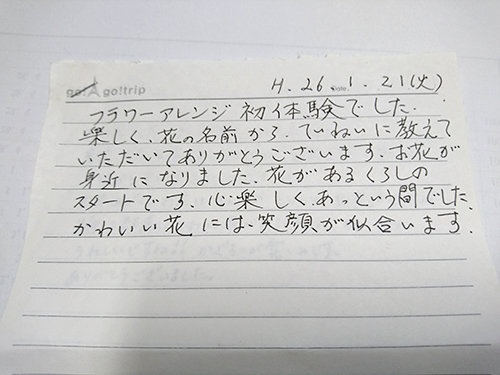 go! go!trip
Date H. 26. 1. 21(火)
フラワーアレンジ初体験でした.
楽しく、花の名前から、ていねいに教えて
いただいてありがとうございます. お花が
身近になりました. 花があるくらしの
スタートです. 心楽しく、あっという間でした.
かわいい花には、笑顔が似合います.